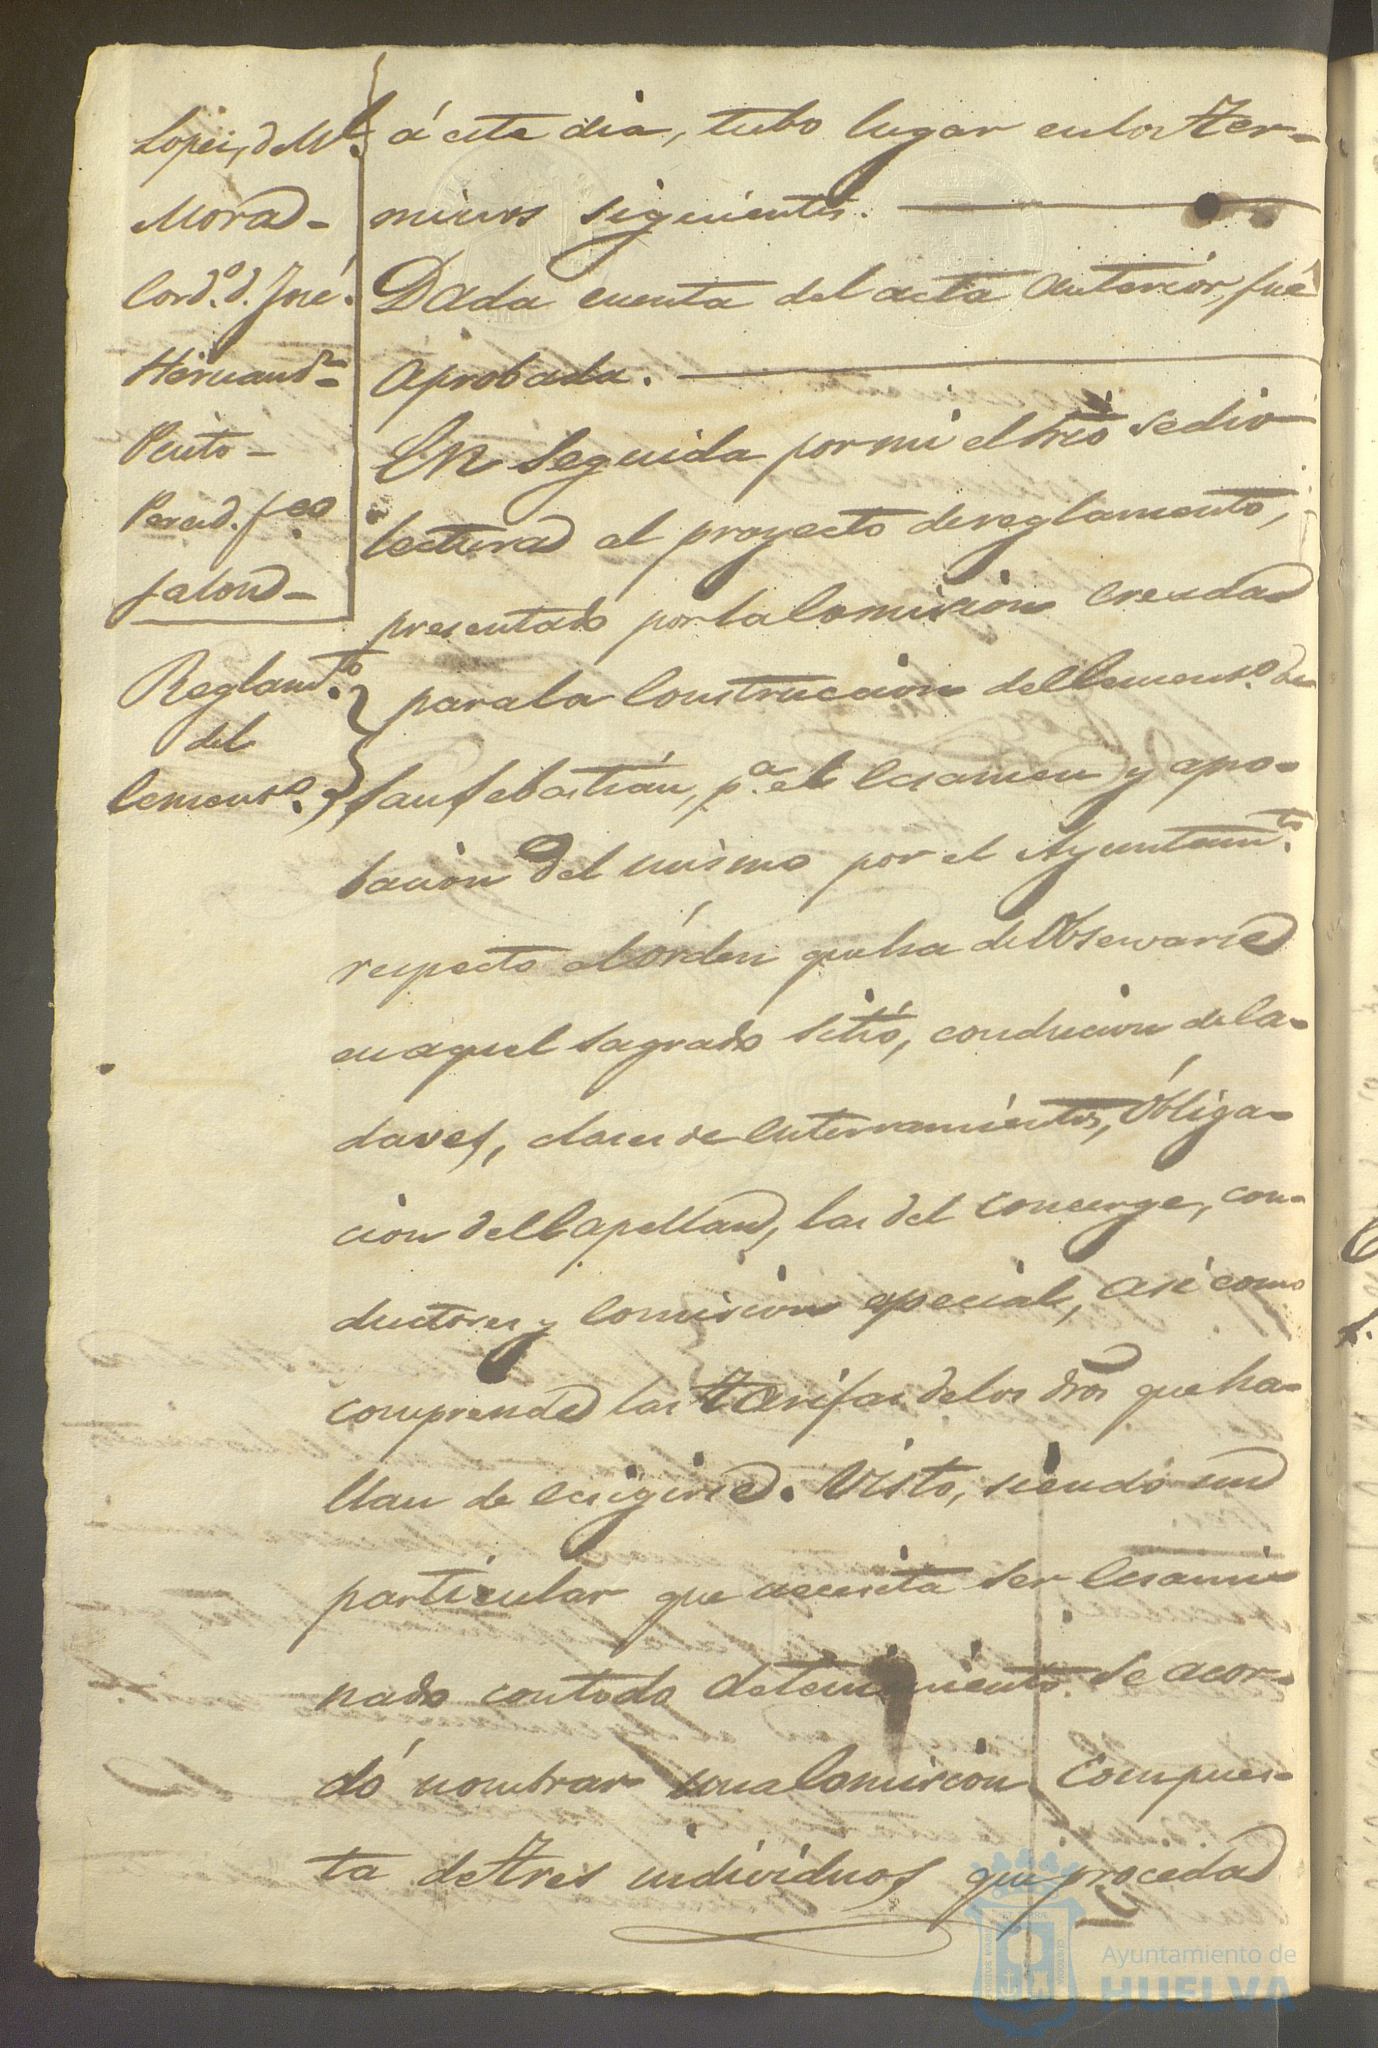 Lopez, d. Ml.
Mora-
Cord.º d. José.
Hernandz-
Pinto-
Pered. Fco
Jalon-
Reglamto.
del
Cemenso.
á este dia, tubo lugar en los ter-
minos siguientes.
Dada cuenta del acta anterior, fué
aprobada.
En seguida por mi el Srio se dió
lectura al proyecto de reglamento,
presentado por la Comision creada
para la Construccion del Cemenso. de
San Sebastián, pa. el Ecsamen y apo-
bacion del mismo por el Ayuntamto.
respecto al órden que ha de Observarse
en aquel sagrado sitió, conducion de ca-
daves, clases de Enterramientos, Obliga-
cion del Capellan, las del Concerge, con-
ductores y Comision especial, asi como
comprende las tarifas de los dros que ha-
llan de Ecsigirse. Visto, siendo un
particular que necesita ser Ecsami-
nado con todo detenimiento se acor-
dó nombrar una Comision Compues-
ta de tres individuos que proceda
Ayuntamiento de
HUELVA